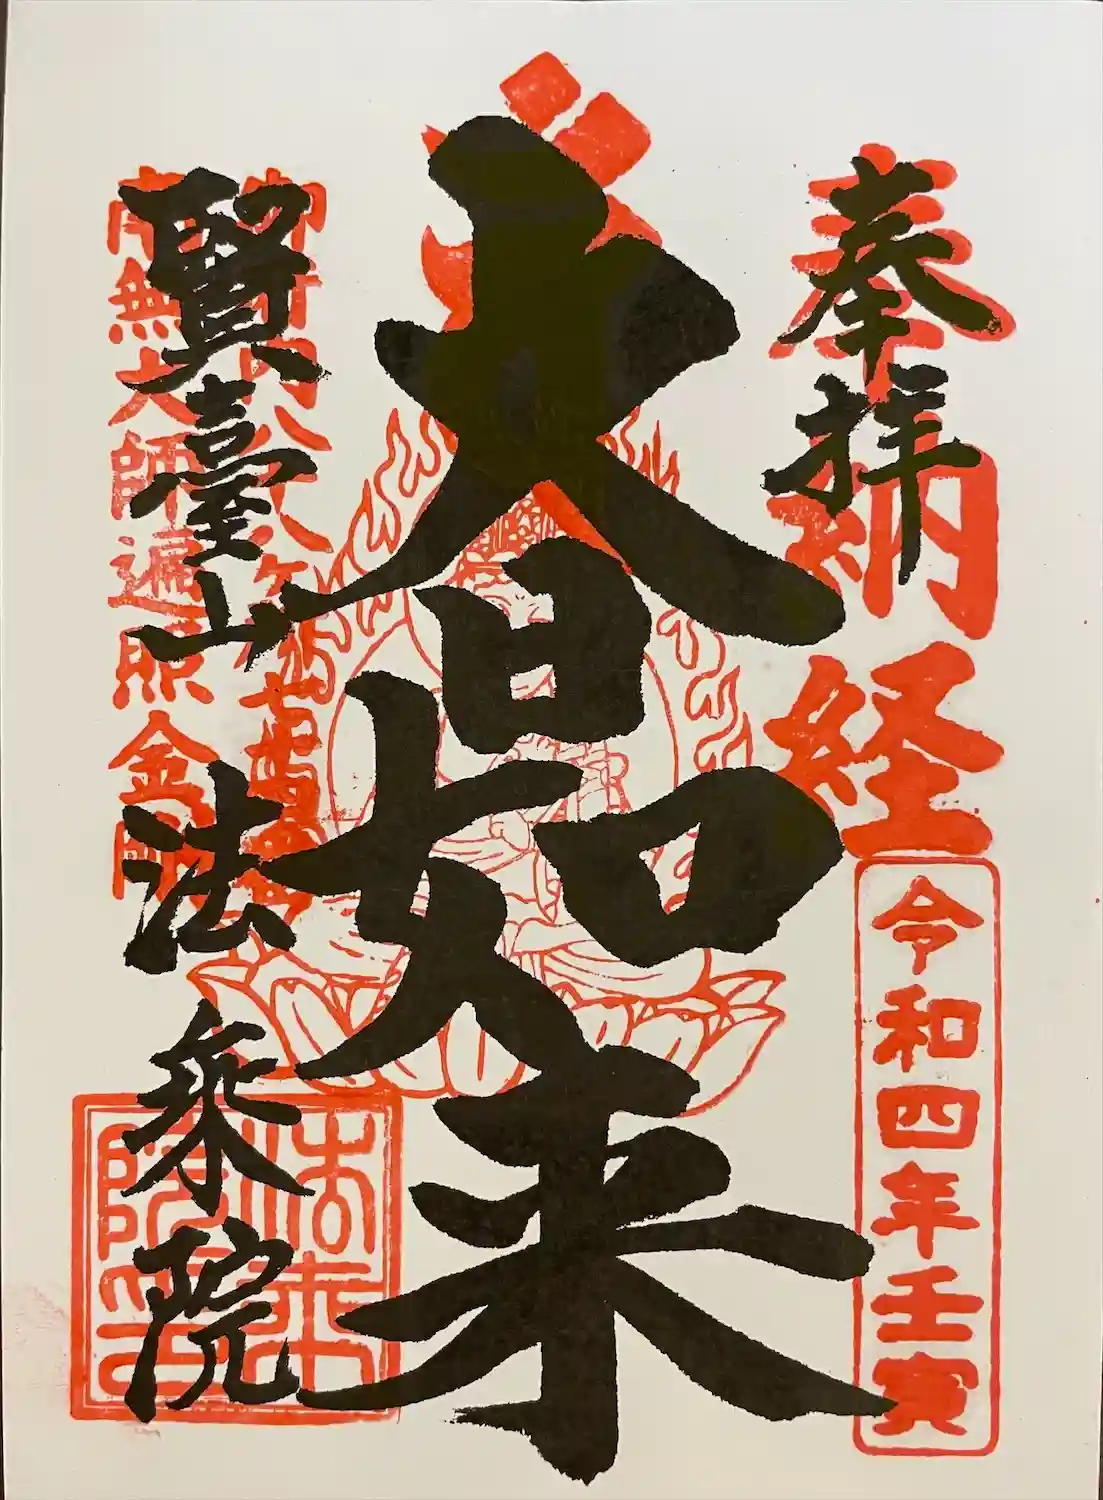 奉拝
納経
令和四年壬寅
大日如来
南無大師遍照金剛
賢臺山
法乗院
法乗院